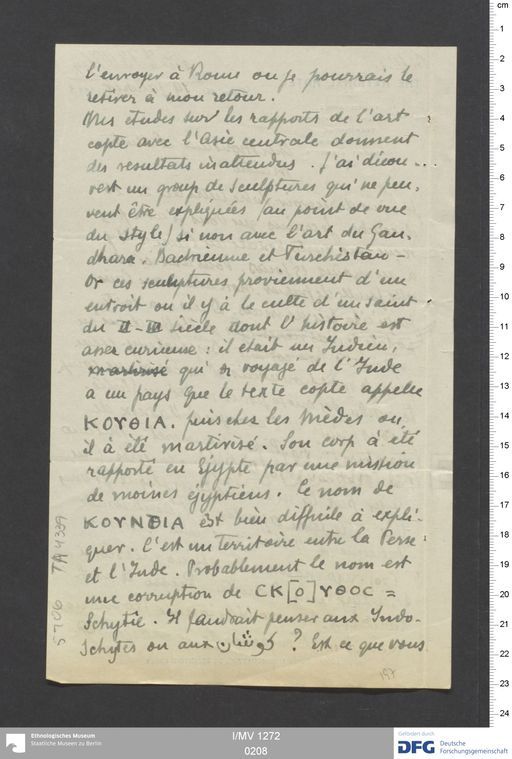 l'envoyer à Rome ou je pourrais le
retirer à mon retour.
Mes études sur les rapports de l'art
copte avec l'Asie centrale donnent
des resultats inattendus. J'ai décou-
vert un group de sculptures qui ne peu,
vent être expliquées (au point de vue
du style) si non avec l'art du Gan,
dhara, Badrienne et Turchistan –
Or ces sculptures proviennent d'un
entroit ou il y à le culte d'un saint
du II–III siècle dont l'histoire est
assez curieuse: il etait un Indien,
martirisé qui a voyagé de l'Inde
a un pays que le texte copte appelle
ΚΟΥΘΙΑ. puis chez les Mèdes ou,
il à été martirisé. Son corp à été
rapporté en Egypte par une mission
de moines égyptiens. Ce nom de
ΚΟΥΝΘΙΑ est bien difficile à expli-
quer. C'est un territoire entre la Perse
et l'Inde. Probablement le nom est
une corruption de CK[O]ΥΘΟC =
Schytie. Il faudrait penser aux Indo-
Schytes ou aux كوشان? Est ce que vous
157
5706
TA 4339
cm
1
2
3
4
5
6
7
8
9
10
11
12
13
14
15
16
17
18
19
20
21
22
23
24
Ethnologisches Museum
Staatliche Museen zu Berlin
I/MV 1272
0208
Gefördert durch
DFG Deutsche
Forschungsgemeinschaft